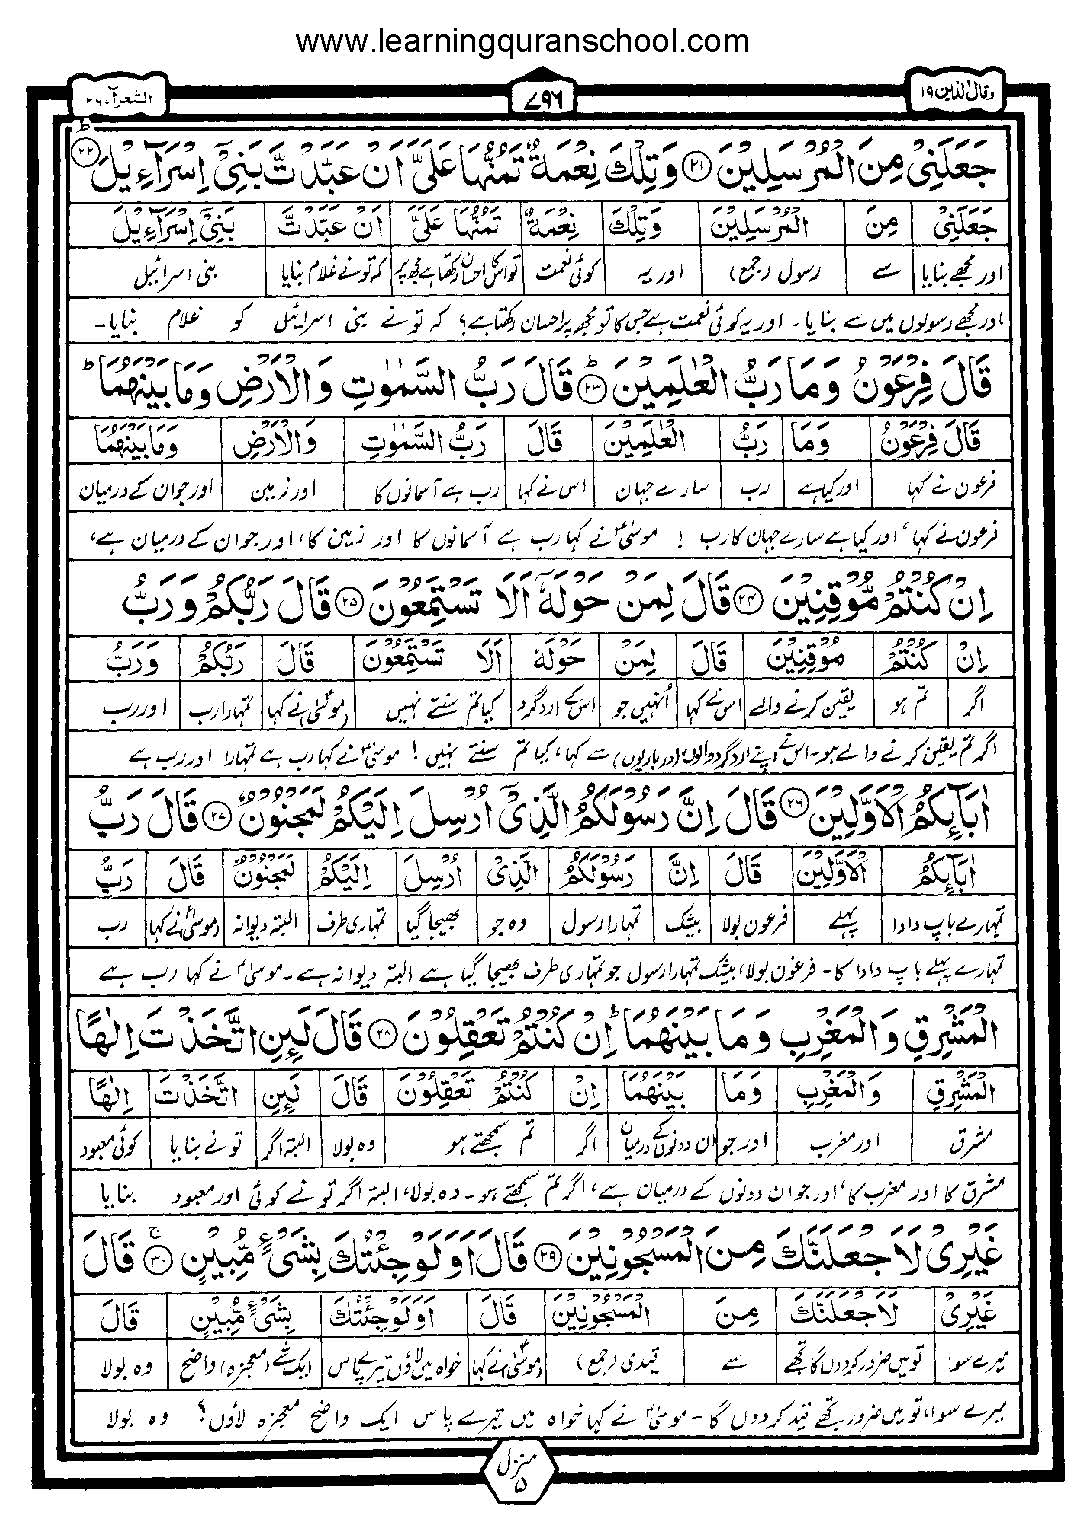 www.learningquranschool.com
وقال الذین ۱۹ ۷۹۶ الشعرآء ۲۶
جَعَلَنِیْ مِنَ الْمُرْسَلِیْنَ ۲۱ وَتِلْكَ نِعْمَةٌ تَمُنُّهَا عَلَیَّ اَنْ عَبَّدْتَّ بَنِیْۤ اِسْرَآءِیْلَ ۲۲ ط
جَعَلَنِیْ مِنَ الْمُرْسَلِیْنَ وَتِلْكَ نِعْمَةٌ تَمُنُّهَا عَلَیَّ اَنْ عَبَّدْتَّ بَنِیْۤ اِسْرَآءِیْلَ
اور مجھے بنایا سے رسول (جمع) اور یہ کوئی نعمت تو اس کا احسان رکھتا ہے مجھ پر کہ تو نے غلام بنایا بنی اسرائیل
اور مجھے رسولوں میں سے بنایا۔ اور یہ کوئی نعمت ہے جس کا تو مجھ پر احسان رکھتا ہے؟ کہ تو نے بنی اسرائیل کو غلام بنایا۔
قَالَ فِرْعَوْنُ وَمَا رَبُّ الْعٰلَمِیْنَ ۲۳ ط قَالَ رَبُّ السَّمٰوٰتِ وَالْاَرْضِ وَمَا بَیْنَهُمَا ط
قَالَ فِرْعَوْنُ وَمَا رَبُّ الْعٰلَمِیْنَ قَالَ رَبُّ السَّمٰوٰتِ وَالْاَرْضِ وَمَا بَیْنَهُمَا
فرعون نے کہا اور کیا ہے رب سارے جہان اس نے کہا رب ہے آسمانوں کا اور زمین اور جو ان کے درمیان
فرعون نے کہا، اور کیا ہے سارے جہان کا رب ! موسیٰؑ نے کہا رب ہے آسمانوں کا اور زمین کا، اور جو ان کے درمیان ہے،
اِنْ كُنْتُمْ مُّوْقِنِیْنَ ۲۴ قَالَ لِمَنْ حَوْلَهٗۤ اَلَا تَسْتَمِعُوْنَ ۲۵ قَالَ رَبُّكُمْ وَرَبُّ
اِنْ كُنْتُمْ مُّوْقِنِیْنَ قَالَ لِمَنْ حَوْلَهٗۤ اَلَا تَسْتَمِعُوْنَ قَالَ رَبُّكُمْ وَرَبُّ
اگر تم ہو یقین کرنے والے اس نے کہا اُنہیں جو اس کے اردگرد کیا تم سنتے نہیں (موسیٰؑ) نے کہا تمہارا رب اور رب
اگر تم یقین کرنے والے ہو۔ اس نے اپنے اردگرد والوں (درباریوں) سے کہا، کیا تم سنتے نہیں ! موسیٰؑ نے کہا رب ہے تمہارا اور رب ہے
اٰبَآىِٕكُمُ الْاَوَّلِیْنَ ۲۶ قَالَ اِنَّ رَسُوْلَكُمُ الَّذِیْۤ اُرْسِلَ اِلَیْكُمْ لَمَجْنُوْنٌ ۲۷ قَالَ رَبُّ
اٰبَآىِٕكُمُ الْاَوَّلِیْنَ قَالَ اِنَّ رَسُوْلَكُمُ الَّذِیْۤ اُرْسِلَ اِلَیْكُمْ لَمَجْنُوْنٌ قَالَ رَبُّ
تمہارے باپ دادا پہلے فرعون بولا بیشک تمہارا رسول وہ جو بھیجا گیا تمہاری طرف البتہ دیوانہ (موسیٰؑ) نے کہا رب
تمہارے پہلے باپ دادا کا۔ فرعون بولا، بیشک تمہارا رسول جو تمہاری طرف بھیجا گیا ہے البتہ دیوانہ ہے۔ موسیٰؑ نے کہا رب ہے
الْمَشْرِقِ وَالْمَغْرِبِ وَمَا بَیْنَهُمَا ط اِنْ كُنْتُمْ تَعْقِلُوْنَ ۲۸ قَالَ لَىِٕنِ اتَّخَذْتَ اِلٰهًا
الْمَشْرِقِ وَالْمَغْرِبِ وَمَا بَیْنَهُمَا اِنْ كُنْتُمْ تَعْقِلُوْنَ قَالَ لَىِٕنِ اتَّخَذْتَ اِلٰهًا
مشرق اور مغرب اور جو ان دونوں کے درمیان اگر تم سمجھتے ہو وہ بولا البتہ اگر تو نے بنایا کوئی معبود
مشرق کا اور مغرب کا، اور جو ان دونوں کے درمیان ہے، اگر تم سمجھتے ہو۔ وہ بولا، البتہ اگر تو نے کوئی اور معبود بنایا
غَیْرِیْ لَاَجْعَلَنَّكَ مِنَ الْمَسْجُوْنِیْنَ ۲۹ قَالَ اَوَلَوْ جِئْتُكَ بِشَیْءٍ مُّبِیْنٍ ۳۰ ج قَالَ
غَیْرِیْ لَاَجْعَلَنَّكَ مِنَ الْمَسْجُوْنِیْنَ قَالَ اَوَلَوْ جِئْتُكَ بِشَیْءٍ مُّبِیْنٍ قَالَ
میرے سوا تو میں ضرور کردوں گا تجھے سے قیدی (جمع) (موسیٰؑ) نے کہا خواہ میں لاؤں تیرے پاس ایک شے (معجزہ) واضح وہ بولا
میرے سوا، تو میں ضرور تجھے قید کردوں گا۔ موسیٰؑ نے کہا خواہ میں تیرے پاس ایک واضح معجزہ لاؤں؟ وہ بولا
منزل ۵